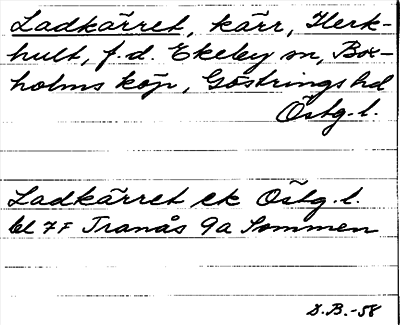 Ladkärret, kärr, Flerk-
hult, f.d. Ekeby sn, Box-
holms köp, Göstrings hd
Östg.l.
Ladkärret ek Östg.l.
bl 7F Tranås 9a Sommen
D.B.-58